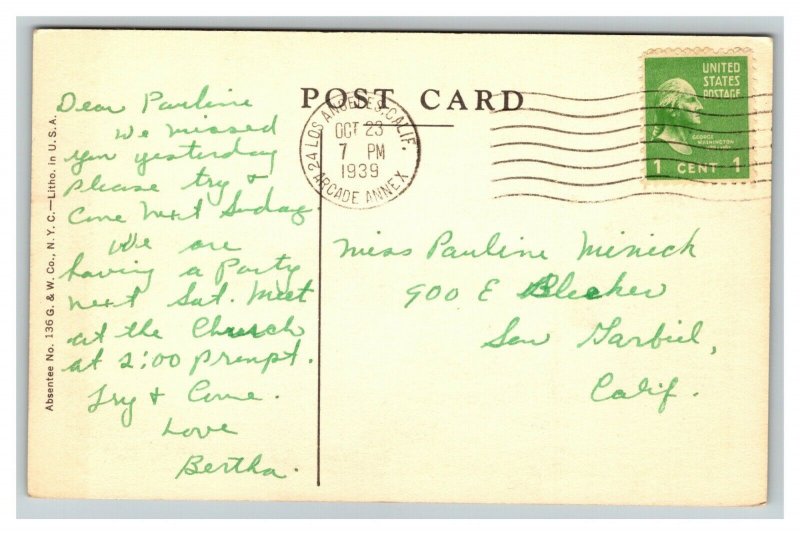 POST CARD
UNITED
STATES
POSTAGE
GEORGE
WASHINGTON
1 CENT 1
24 LOS ANGELES, CALIF.
OCT 23
7 PM
1939
ARCADE ANNEX
Dear Pauline
We missed
you yesterday
please try &
Come next Sunday.
We are
having a Party
next Sat. Meet
at the Church
at 2:00 prompt.
Try & Come.
Love
Bertha.
Miss Pauline Minich
900 E Bleeker
San Garbiel,
Calif.
Absentee No. 136 G. & W. Co., N. Y. C.—Litho. in U. S. A.